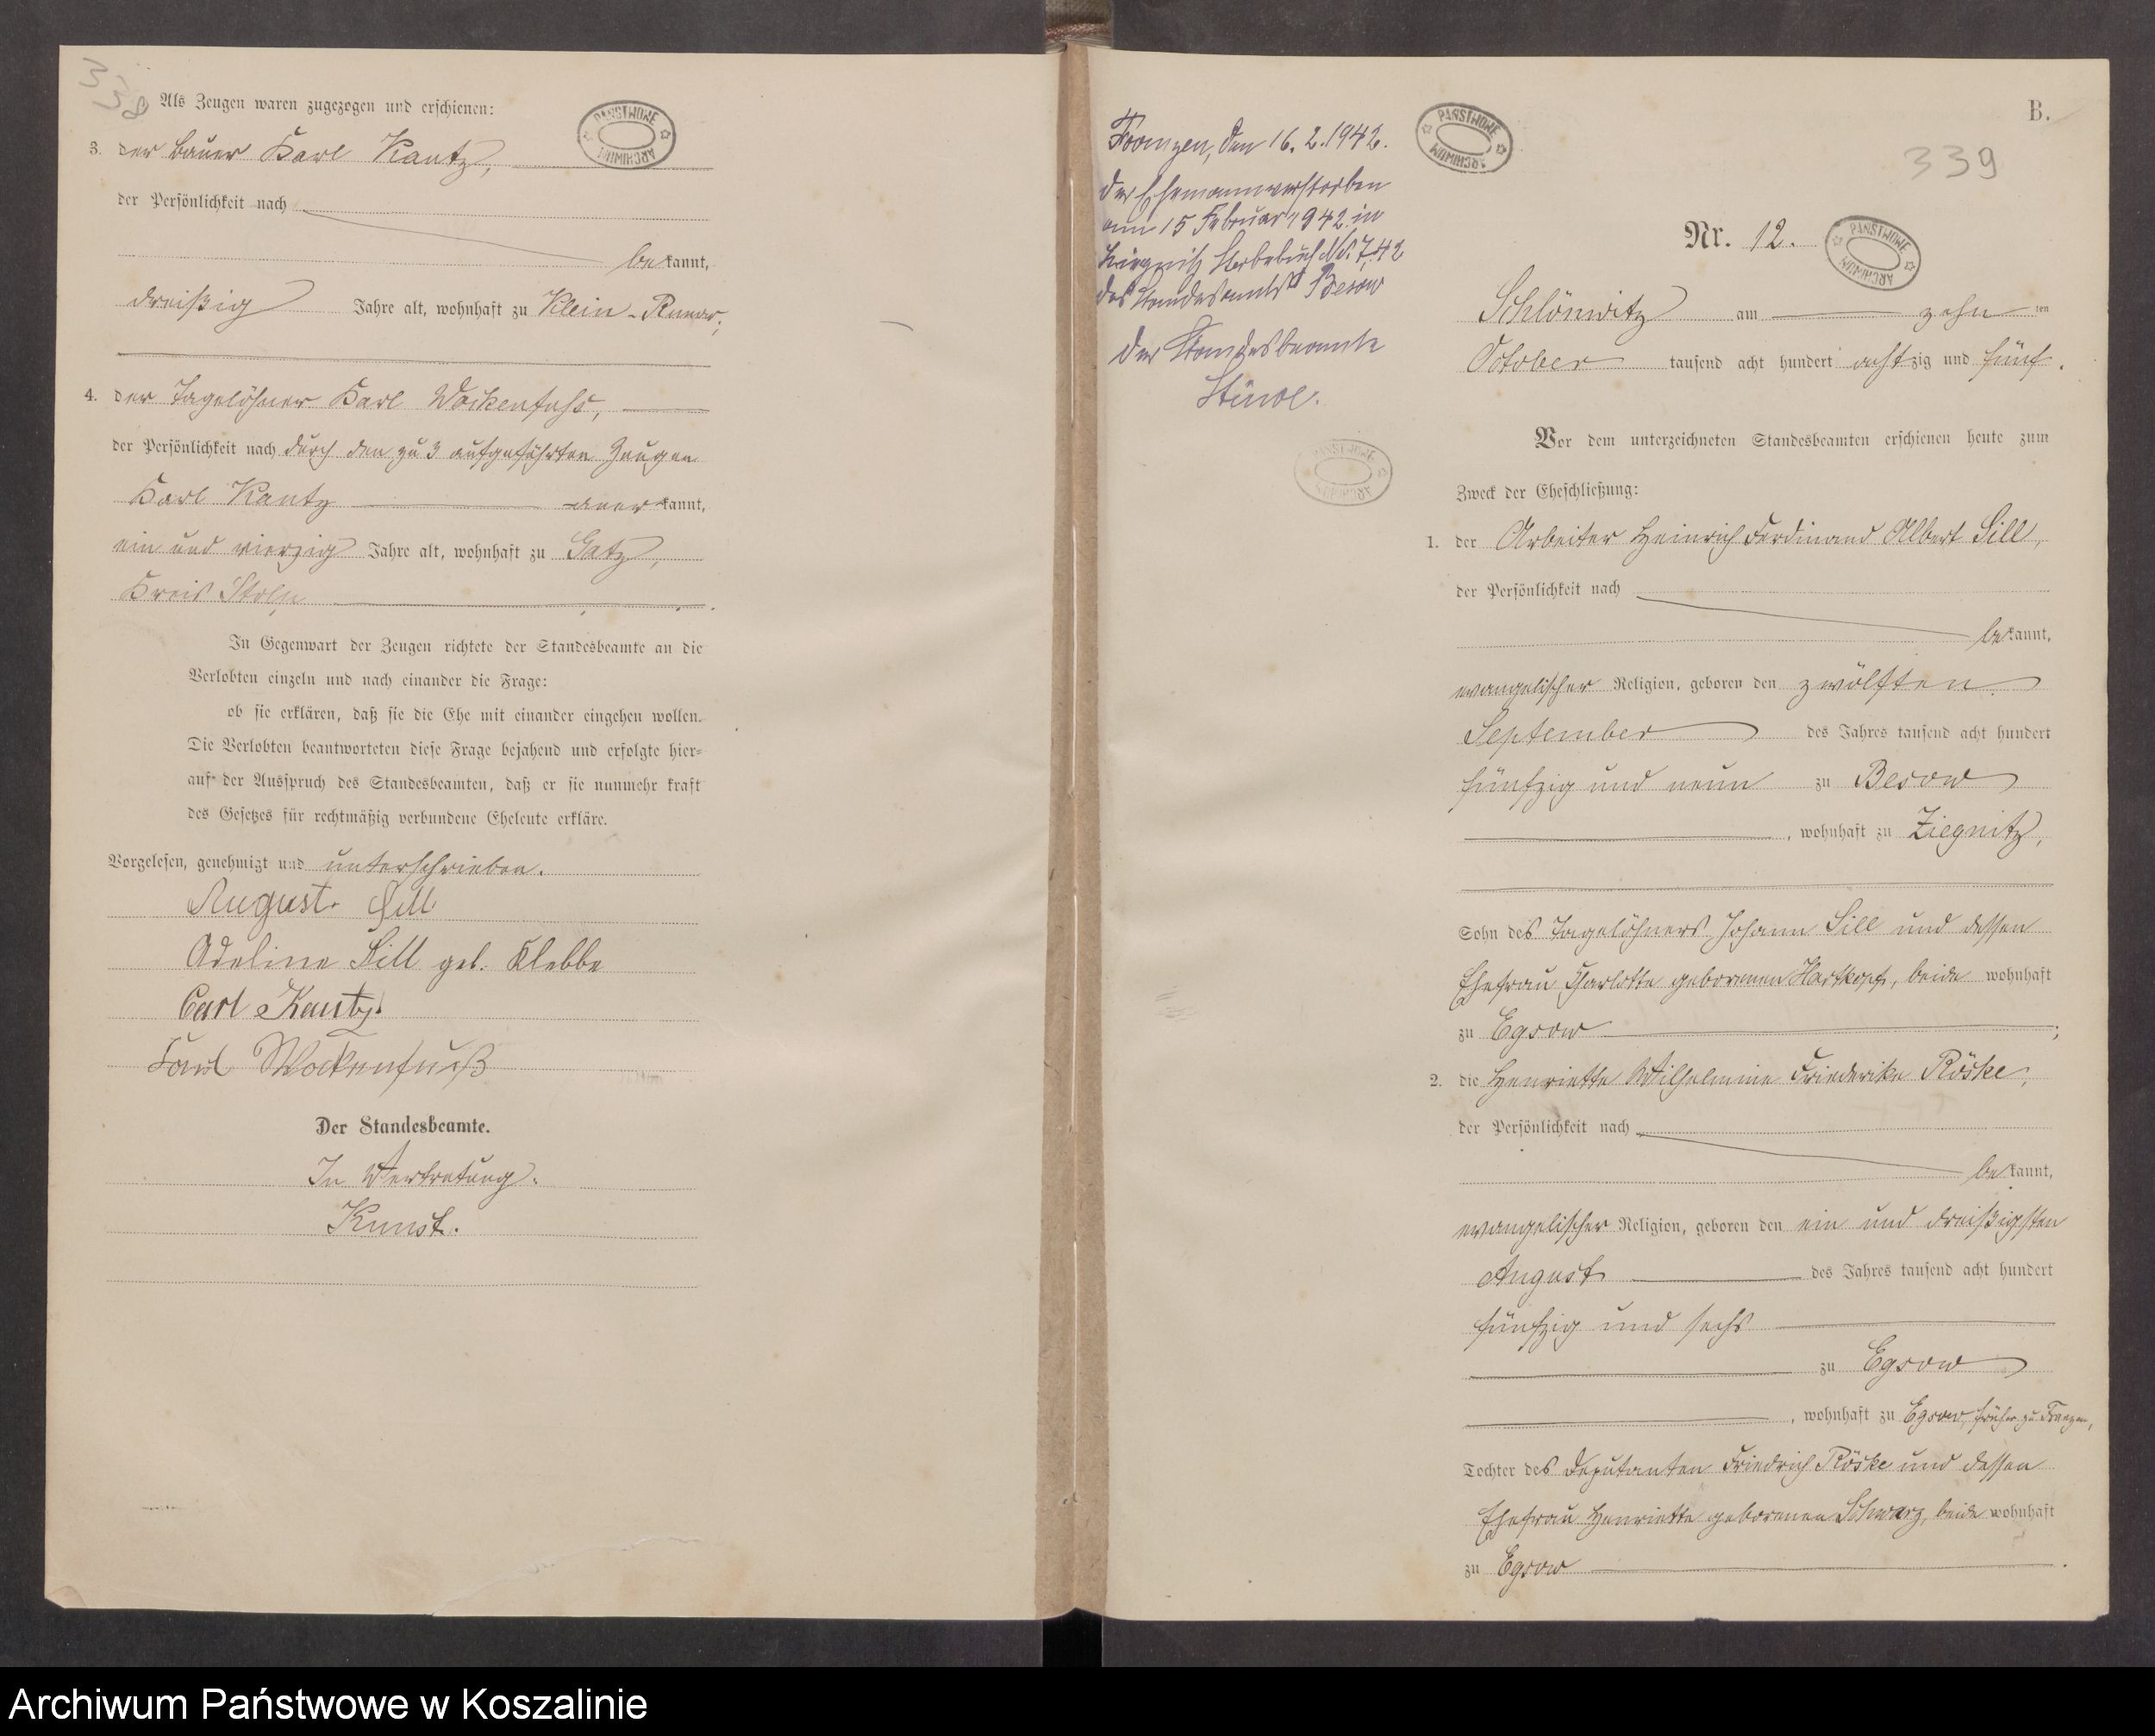 338
Als Zeugen waren zugezogen und erschienen:
3. der Bauer Karl Kautz,
der Persönlichkeit nach
bekannt,
dreißig Jahre alt, wohnhaft zu Klein-Runow,
4. der Tagelöhner Karl Wockenfuhs,
der Persönlichkeit nach durch den zu 3 aufgeführten Zeugen
Karl Kautz anerkannt,
ein und vierzig Jahre alt, wohnhaft zu Gatz,
Kreis Stolp
In Gegenwart der Zeugen richtete der Standesbeamte an die
Verlobten einzeln und nach einander die Frage:
ob sie erklären, daß sie die Ehe mit einander eingehen wollen.
Die Verlobten beantworteten diese Frage bejahend und erfolgte hier-
auf der Ausspruch des Standesbeamten, daß er sie nunmehr kraft
des Gesetzes für rechtmäßig verbundene Eheleute erkläre.
Vorgelesen, genehmigt und unterschrieben.
August Sill
Adeline Sill geb. Klebba
Carl Kautz
Karl Wockenfuß
Der Standesbeamte.
In Vertretung.
Kunst.
PAŃSTWOWE ARCHIWUM
B.
339
Franzen, den 16.2.1942.
Der Ehemann verstorben
am 15 Februar 1942 in
Ziegnitz Sterbebuch Nr. 7/42
des Standesamts Besow
Der Standesbeamte
PAŃSTWOWE ARCHIWUM
PAŃSTWOWE ARCHIWUM
Nr. 12.
PAŃSTWOWE ARCHIWUM
Schlönwitz am zehn ten
October tausend acht hundert achtzig und fünf.
Vor dem unterzeichneten Standesbeamten erschienen heute zum
Zweck der Eheschließung:
1. der Arbeiter Heinrich Ferdinand Albert Sill,
der Persönlichkeit nach
bekannt,
evangelischer Religion, geboren den zwölften
September des Jahres tausend acht hundert
fünfzig und neun zu Besow
, wohnhaft zu Ziegnitz,
Sohn des Tagelöhners Johann Sill und dessen
Ehefrau Charlotte geborenen Hartkopf, beide wohnhaft
zu Egsow ;
2. die Henriette Wilhelmine Friederike Röske,
der Persönlichkeit nach
bekannt,
evangelischer Religion, geboren den ein und dreißigsten
August des Jahres tausend acht hundert
fünfzig und sechs
zu Egsow
, wohnhaft zu Egsow, früher zu Franzen,
Tochter des Deputanten Friedrich Röske und dessen
Ehefrau Henriette geborenen Schwarz, beide wohnhaft
zu Egsow .
Archiwum Państwowe w Koszalinie